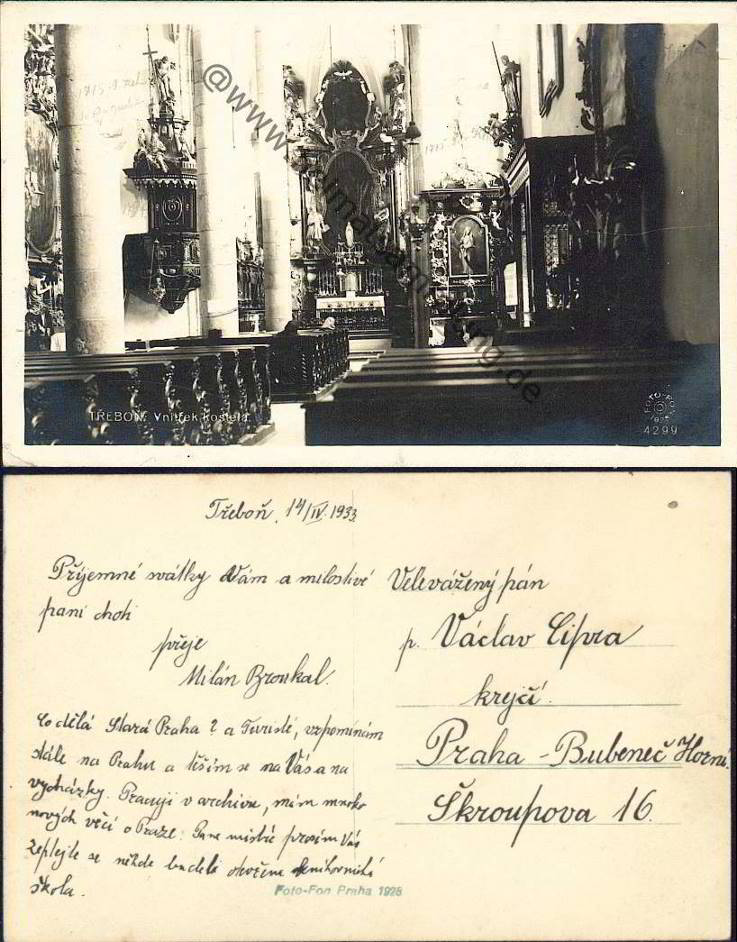 @www.heimatsammlung.de
TŘEBOŇ. Vnitřek kostela.
FOTO-FON
4299
Třeboň, 14/IV. 1933
Příjemné svátky Vám a milostivé
paní choti
přeje
Milán Broukal.
Co dělá Stará Praha? a Turisté, vzpomínám
stále na Prahu a těším se na Vás a na
vycházky. Pracuji v archivu, mám mnoho
nových věcí o Praze. Pane mistře prosím Vás
zeptejte se někde bude-li otevřena knihovnická
škola.
Velevážený pán
p. Václav Cipra
krejčí.
Praha - Bubeneč Horní.
Škroupova 16.
Foto-Fon Praha 1928